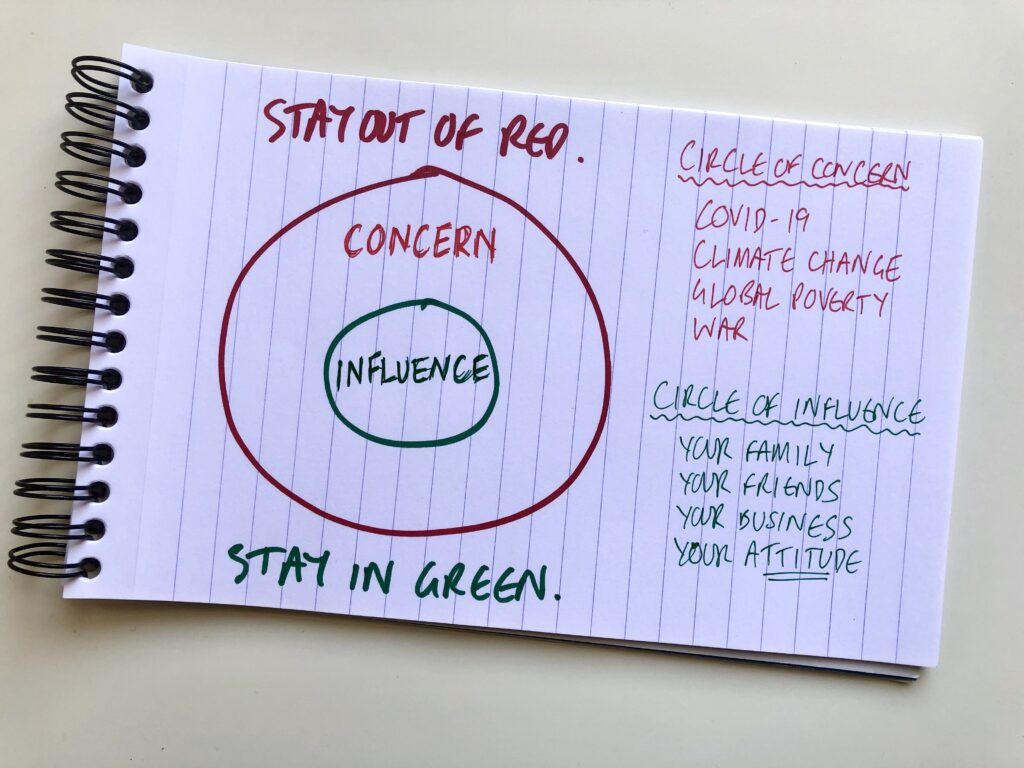 STAY OUT OF RED.
CONCERN
INFLUENCE
STAY IN GREEN.
CIRCLE OF CONCERN
COVID-19
CLIMATE CHANGE
GLOBAL POVERTY
WAR
CIRCLE OF INFLUENCE
YOUR FAMILY
YOUR FRIENDS
YOUR BUSINESS
YOUR ATTITUDE